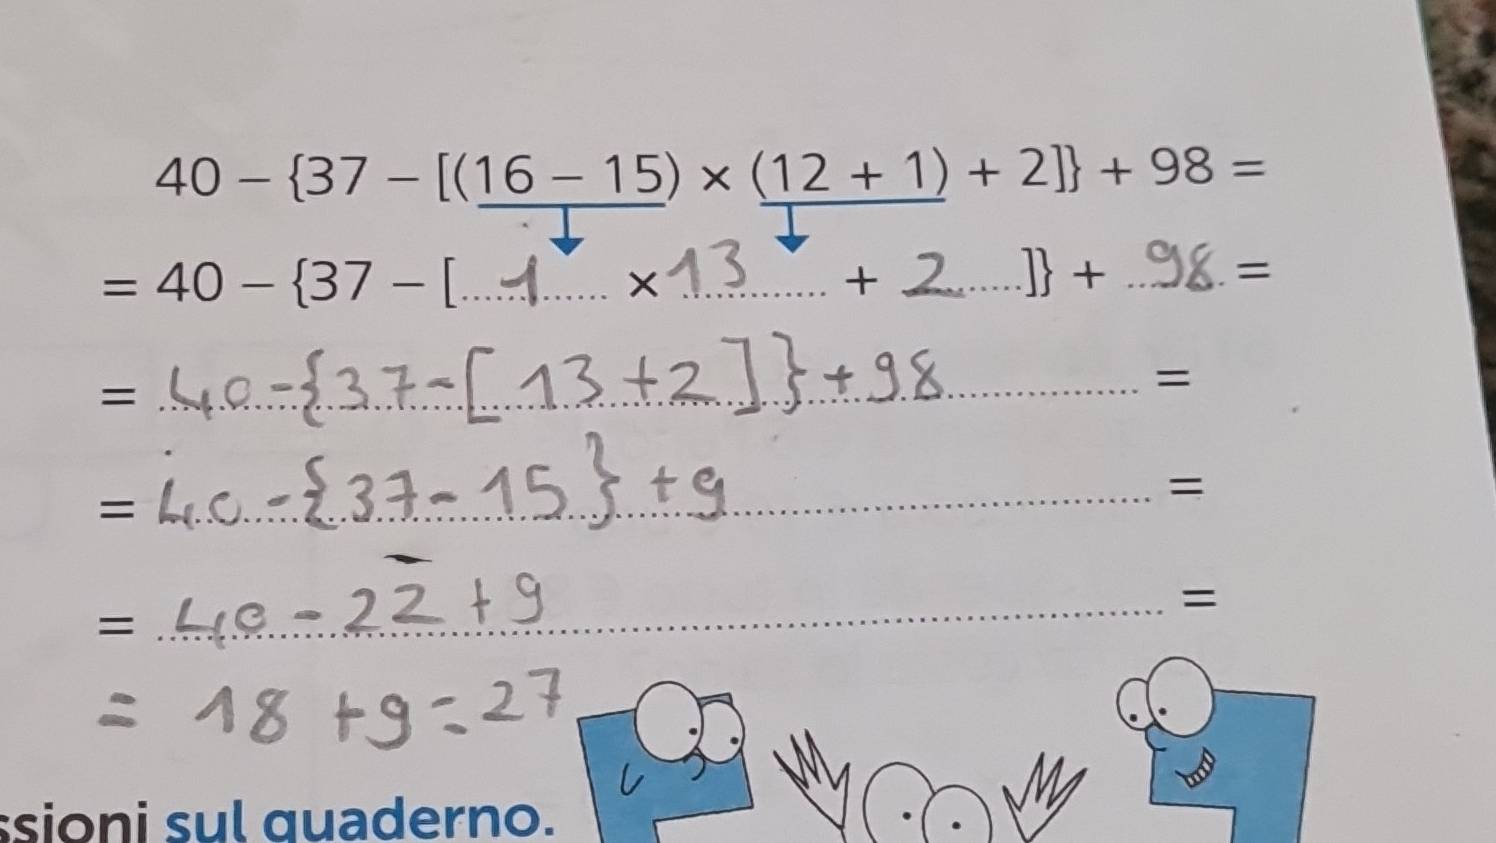 40 – {37 – [(16 – 15) × (12 + 1) + 2]} + 98 =
= 40 – {37 – [......1...... × 13 ...... + 2 ......]} + ...98. =
= 40-{37-[13+2]}+98 =
= 40-{37-15}+9 =
= 40-22+9 =
= 18+9=27
ssioni sul quaderno.